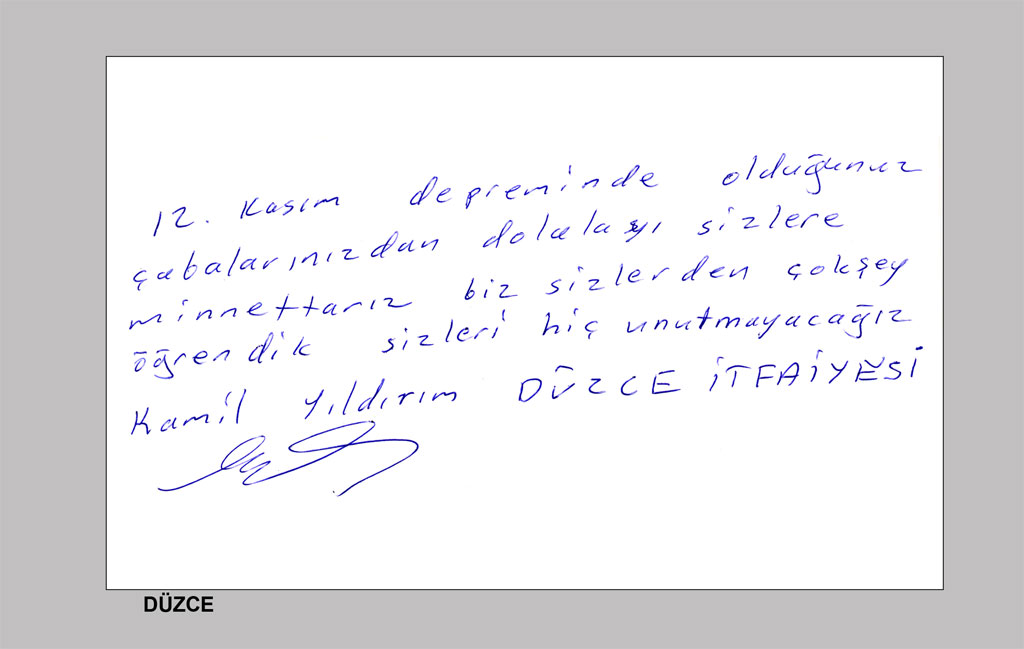 12. Kasım depreminde olduğunuz
çabalarınızdan dolulayı sizlere
minnettarız biz sizlerden çokşey
öğrendik sizleri hiç unutmayacağız
Kamil Yıldırım DÜZCE İTFAİYESİ
DÜZCE